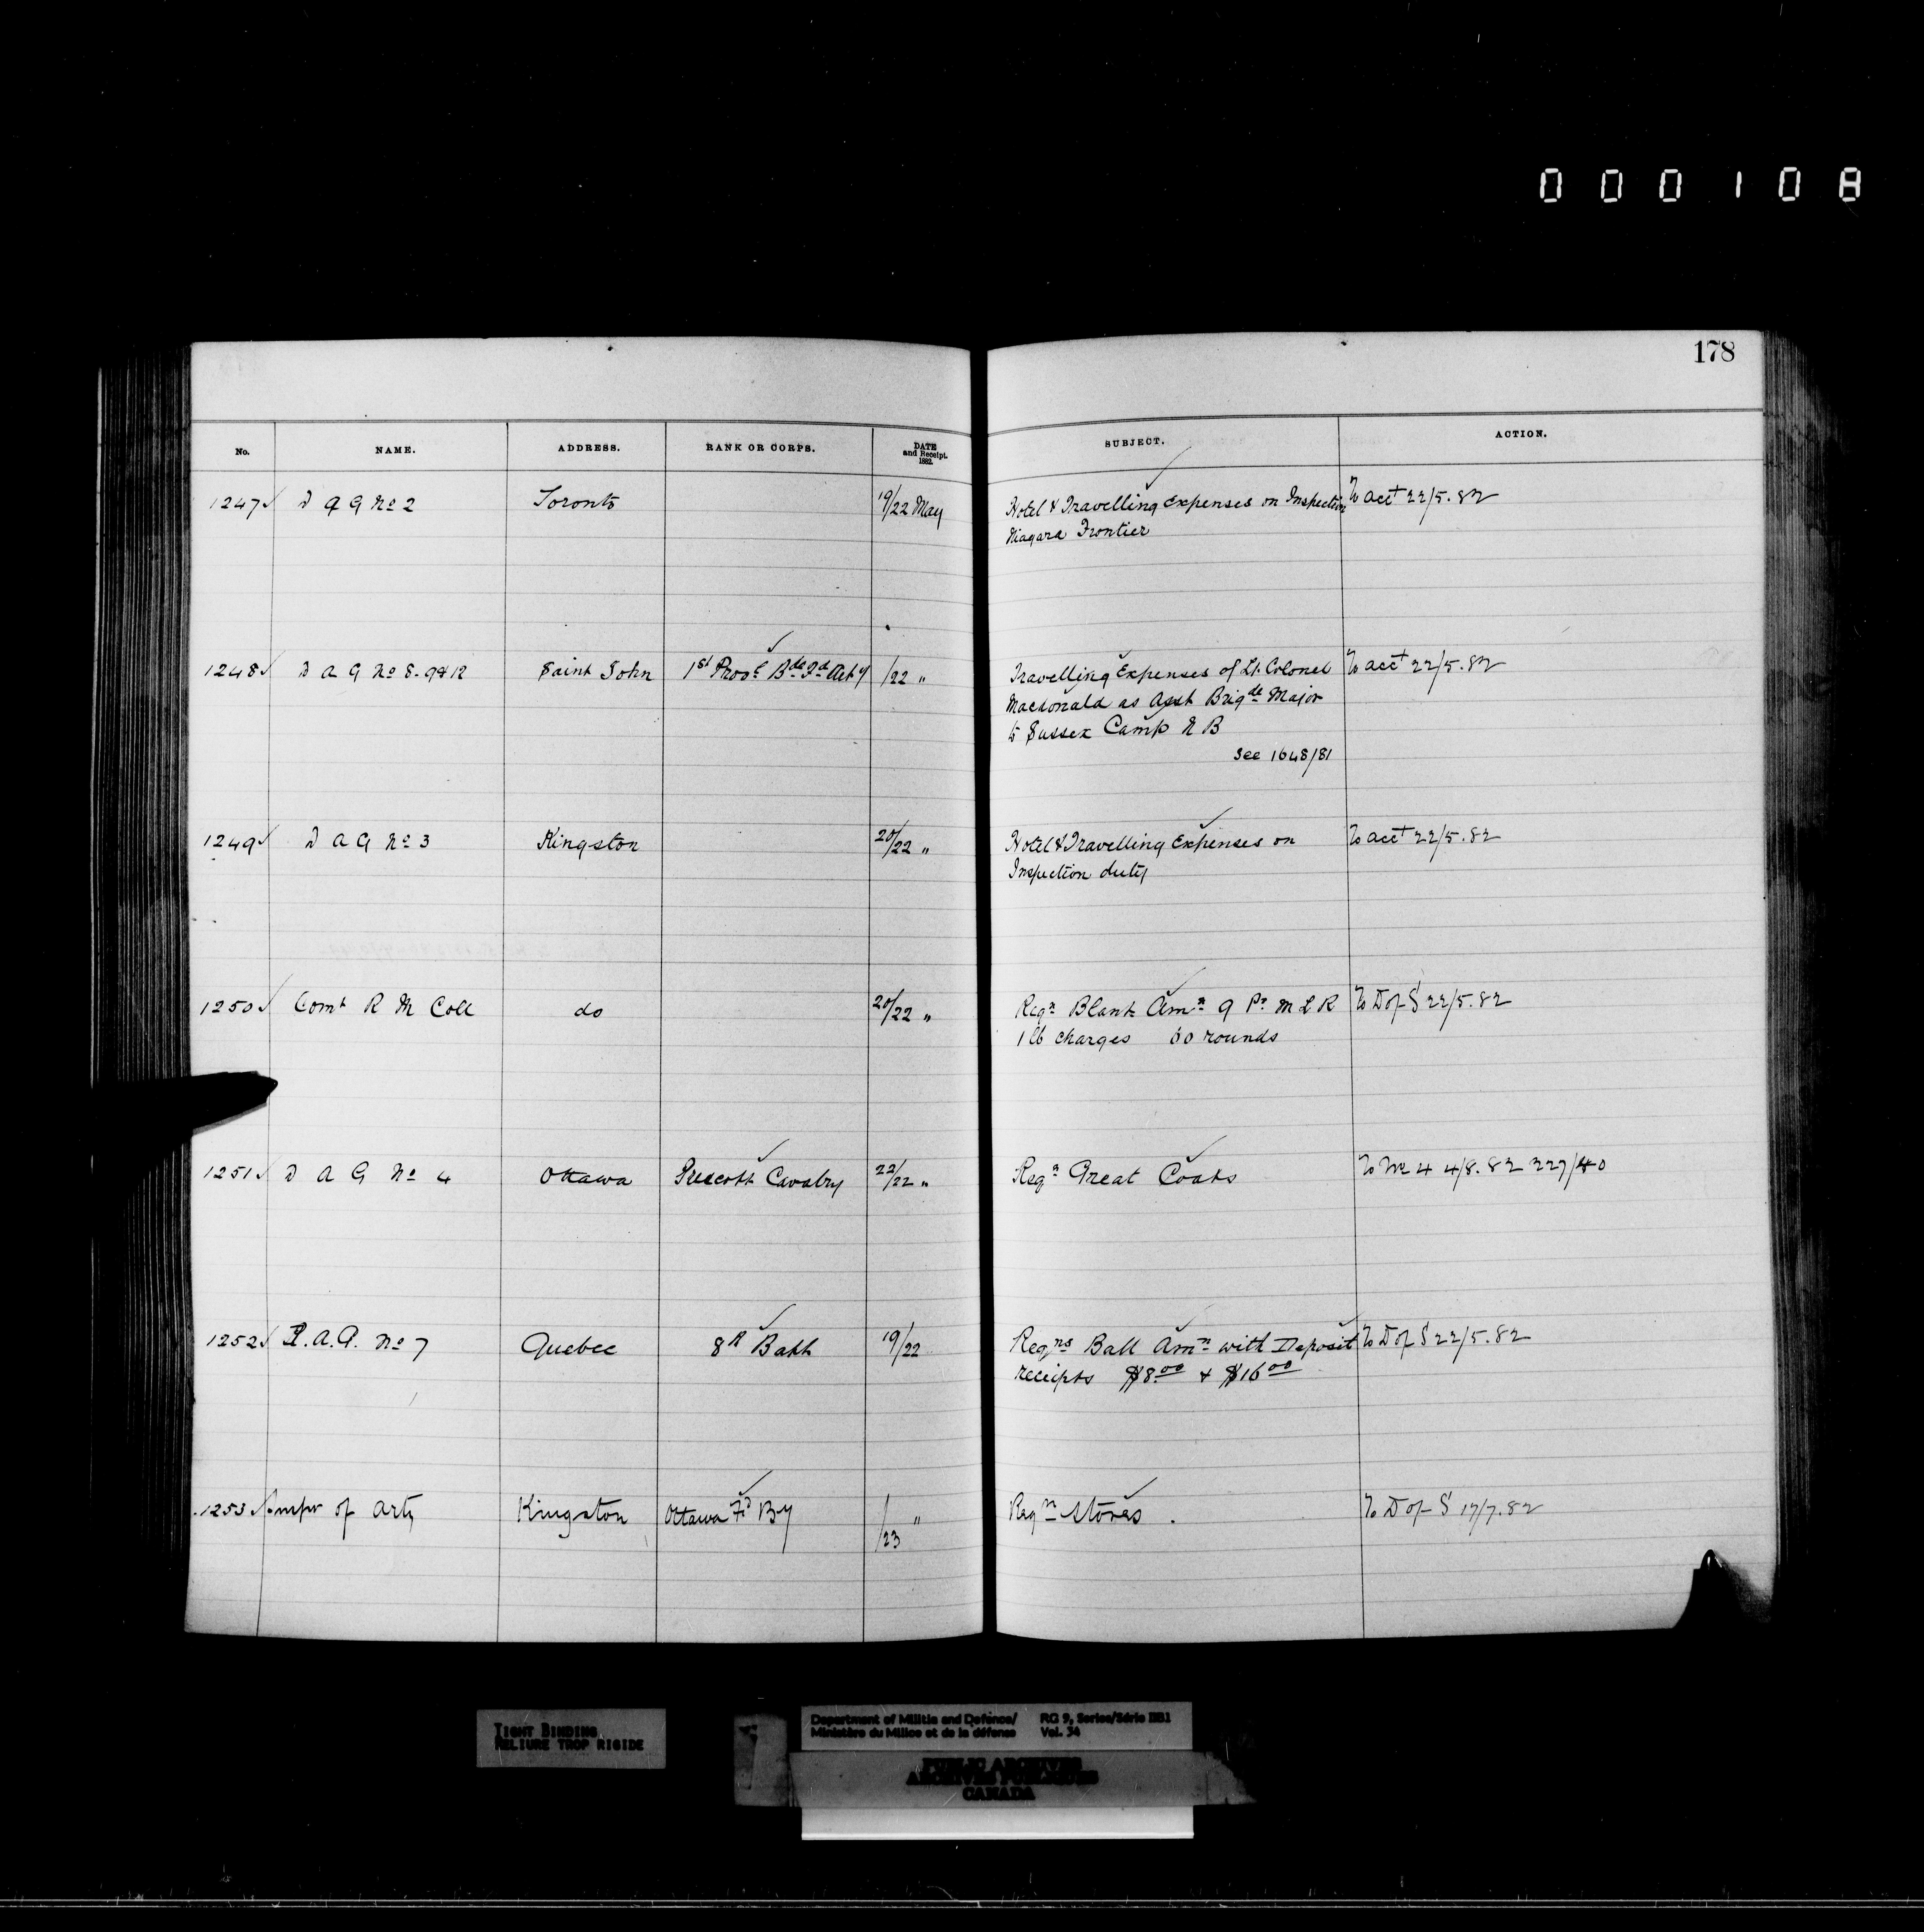 000108
178
No. NAME. ADDRESS. RANK OR CORPS. DATE and Receipt. 1882. SUBJECT. ACTION.
1247 D A G No 2 Toronto 19/22 May Hotel & Travelling Expenses on Inspection To acct 22/5.82
Niagara Frontier
1248 D A G No 8.9&12 Saint John 1st Provl Bde Fd Arty /22 " Travelling Expenses of Lt. Colonel To acct 22/5.82
Macdonald as Asst Brigde Major
to Sussex Camp N B
See 1648/81
1249 D A G No 3 Kingston 20/22 " Hotel & Travelling Expenses on To acct 22/5.82
Inspection duty
1250 Comt R M Coll do 20/22 " Reqn Blank Amn 9 Pr M L R To D of S 22/5.82
1 lb charges 60 rounds
1251 D A G No 4 Ottawa Prescott Cavalry 22/22 " Reqn Great Coats To No 4 4/8.82 227/40
1252 D.A.G. No 7 Quebec 8th Batt 19/22 Reqns Ball Amn with Deposit To D of S 22/5.82
receipts $8.00 & $16.00
1253 Inspr of Arty Kingston Ottawa Fd By /23 " Reqn Stores. To D of S 17/7.82
TIGHT BINDING
RELIURE TROP RIGIDE
Department of Militia and Defence/ RG 9, Series/Série IIB1
Ministère du Milice et de la défense Vol. 34
PUBLIC ARCHIVES
ARCHIVES PUBLIQUES
CANADA